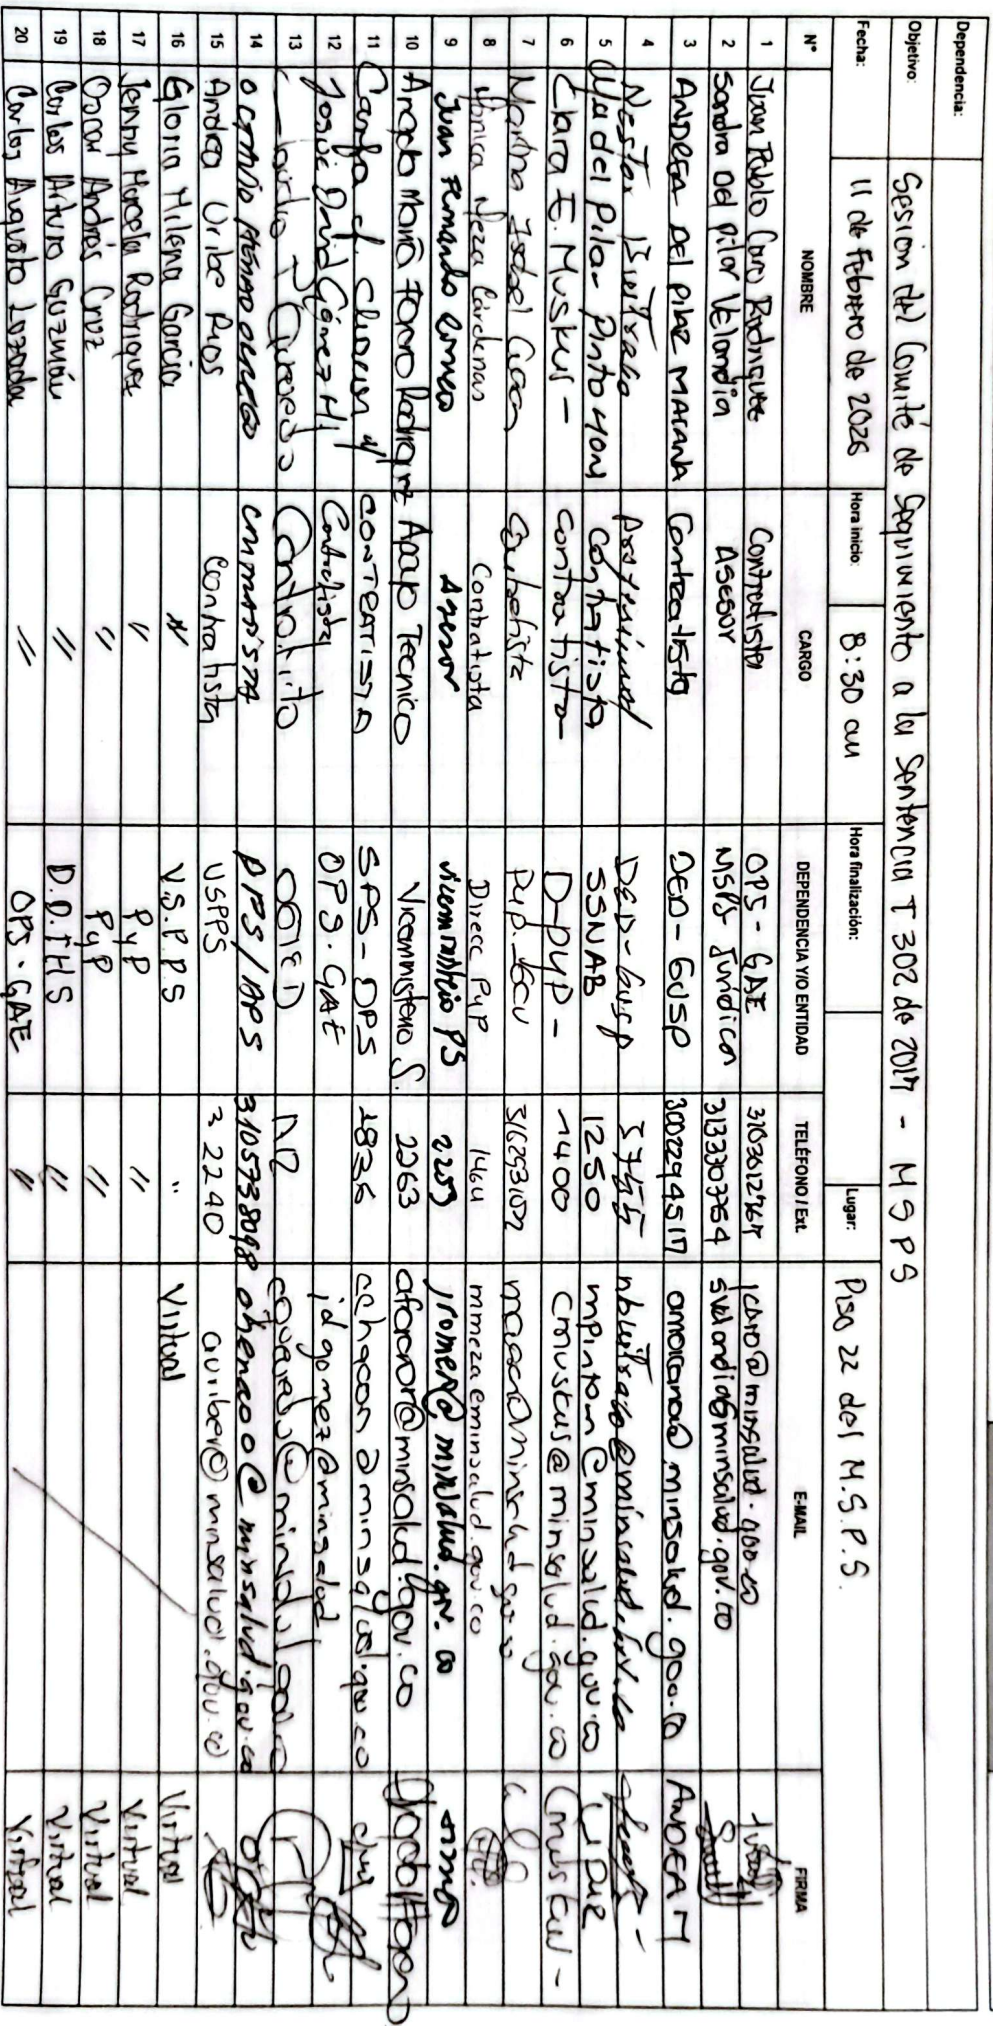 Dependencia:
Objetivo: Sesión del Comité de Seguimiento a la Sentencia T 302 de 2017 - MSPS
Fecha: 11 de Febrero de 2026 Hora inicio: 8:30 am Hora finalización: Lugar: Piso 22 del M.S.P.S.
N° NOMBRE CARGO DEPENDENCIA Y/O ENTIDAD TELÉFONO / Ext. E-MAIL FIRMA
1 Juan Pablo Caro Rodríguez Contratista OPS - GAE jcaro@minsalud.gov.co
2 Sandra del pilar Velandia Asesor MSPS Jurídica 3133303754 svelandia@minsalud.gov.co
3 ANDREA Del pilar MACANA Contratista DED - GUSP 3002945117 amacana@minsalud.gov.co ANDREA M
4 Nestor Buitrago Profesional DED-Gusp
5 Ma del Pilar Pinto Contratista SSNAB 1250 mpintom@minsalud.gov.co
6 Clara E. Muskus - Contratista D-PyP - 1400 cmuskus@minsalud.gov.co Cmuskus -
7 Martha Isabel Contratista PyP
8 Mónica Meza Cárdenas Contratista Direcc PyP 1464 mmeza@minsalud.gov.co
9 Juan Fernando Romero Asesor viceministerio PS jromero@minsalud.gov.co
10 María Forero Rodríguez Apoyo Tecnico Viceministerio S. 2263 aforeror@minsalud.gov.co
11 CONTRATISTA SPS - OPS cchacon@minsalud.gov.co
12 Josué David Gómez H Contratista OPS. GAE jdgomez@minsalud
13 Contratista
14 OCTAVIO HENAO Contratista DPS/APS 3105738098 ohenaoo@minsalud.gov.co
15 Andrea Uribe Rios Contratista VSPPS 3 2240 auriber@minsalud.gov.co
16 Gloria Milena García " V.S.P.P.S " Virtual Virtual
17 Jenny Marcela Rodriguez " PyP " Virtual
18 Oscar Andrés Cruz " PyP " Virtual
19 Carlos Arturo Guzmán " D.D.T.H.S " Virtual
20 Carlos Augusto Lozada " OPS - GAE " Virtual